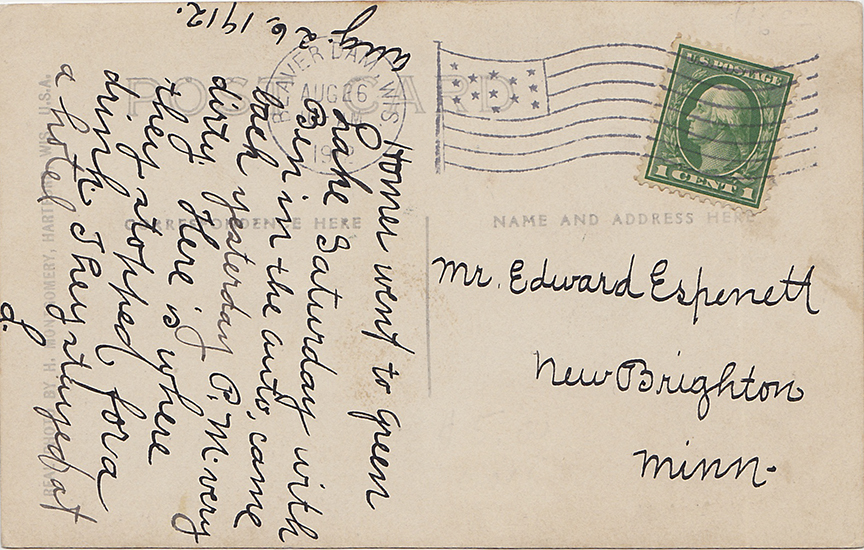 POST CARD
BEAVER DAM, WIS
AUG 26
U.S. POSTAGE
1 CENT 1
CORRESPONDENCE HERE
NAME AND ADDRESS HERE
Aug. 26, 1912.
Homer went to Green
Lake Saturday with
Ben in the auto, came
back yesterday P.M. very
dirty. Here is where
they stopped for a
drink. They stayed at
a hotel
d.
Mr. Edward Espenett
New Brighton
Minn.
BY H. MONTGOMERY, HARTFORD, WIS. U.S.A.